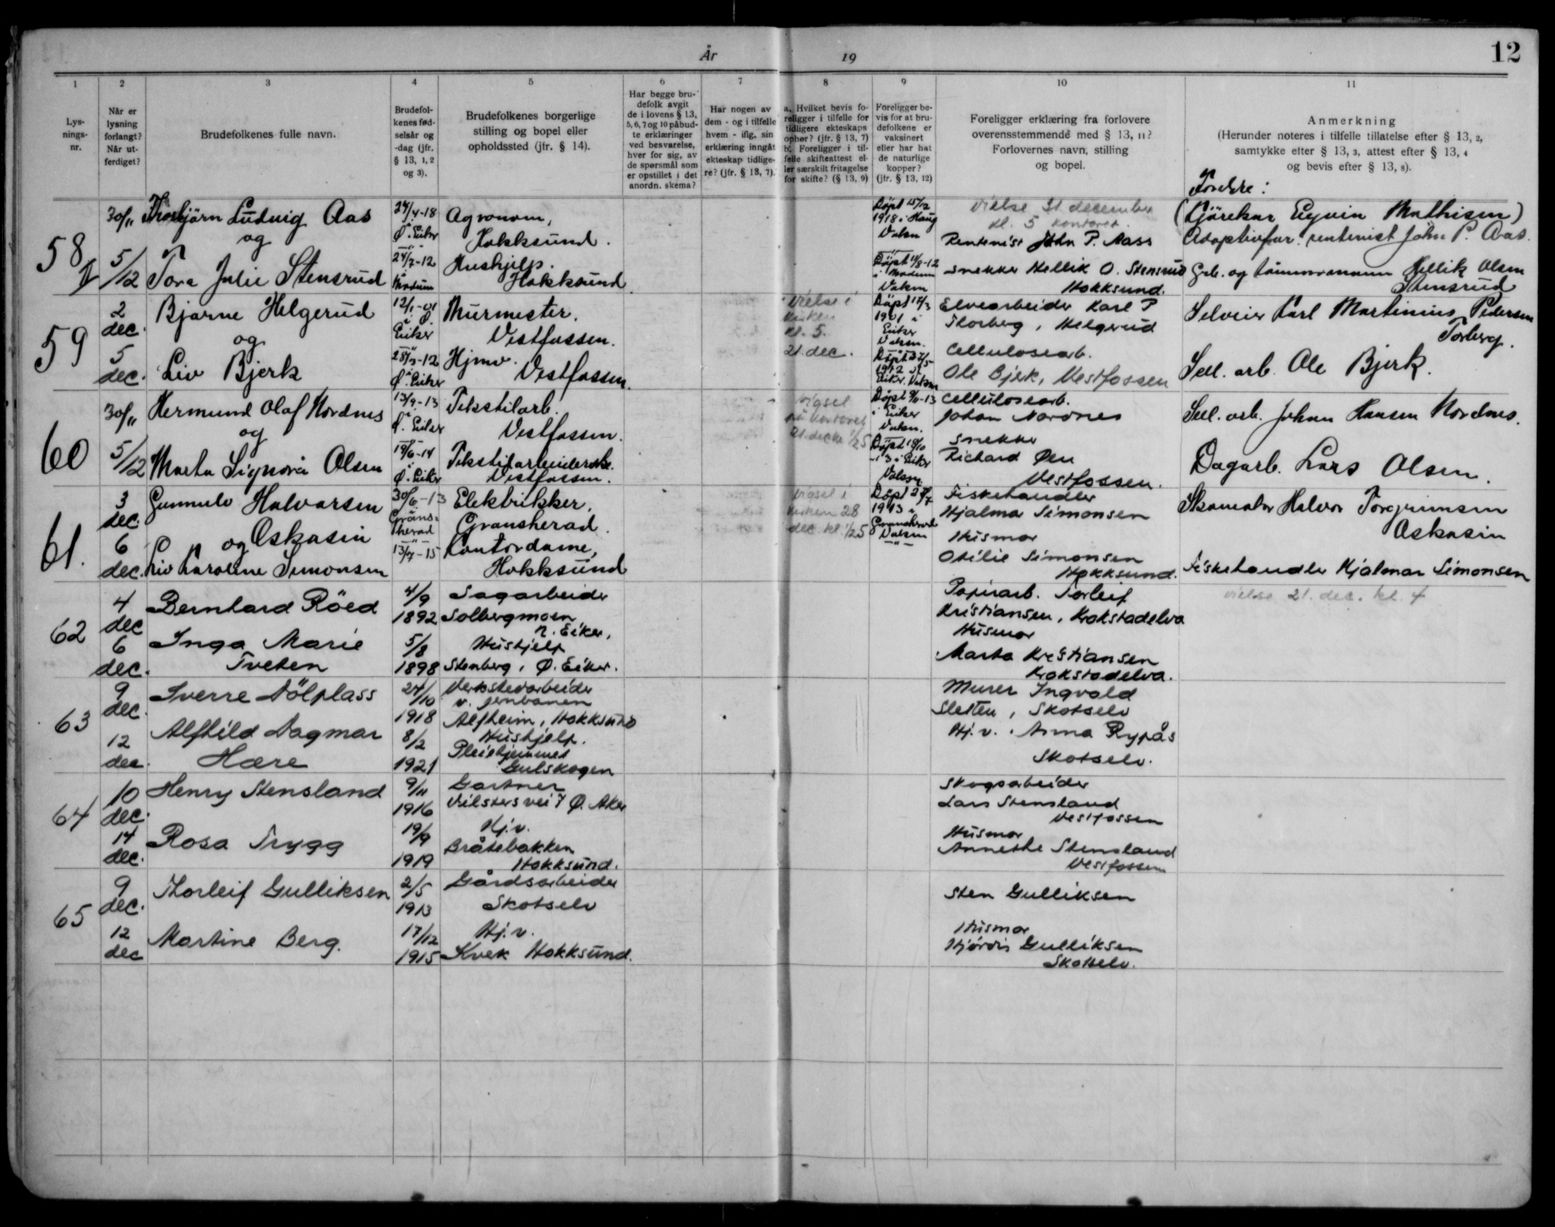 År 19
12
1 2 3 4 5 6 7 8 9 10 11
Lys-
nings-
nr.
Når er
lysning
forlangt?
Når ut-
ferdiget?
Brudefolkenes fulle navn.
Brudefol-
kenes fød-
selsår og
-dag (jfr.
§ 13, 1, 2
og 3).
Brudefolkenes borgerlige
stilling og bopel eller
opholdssted (jfr. § 14).
Har begge bru-
defolk avgit
de i lovens § 13,
5, 6, 7 og 10 påbud-
te erklæringer
ved besvarelse,
hver for sig, av
de spørsmål som
er opstillet i det
anordn. skema?
Har nogen av
dem - og i tilfelle
hvem - iflg. sin
erklæring inngått
ekteskap tidlige-
re? (jfr. § 13, 7).
a. Hvilket bevis fo-
religger i tilfelle for
tidligere ekteskaps
ophør? (jfr. § 13, 7)
b. Foreligger i til-
felle skifteattest el-
ler særskilt fritagelse
for skifte? (§ 13, 9)
Foreligger be-
vis for at bru-
defolkene er
vaksinert
eller har hat
de naturlige
kopper?
(jfr. § 13, 12)
Foreligger erklæring fra forlovere
overensstemmende med § 13, 11?
Forlovernes navn, stilling
og bopel.
Anmerkning
(Herunder noteres i tilfelle tillatelse efter § 13, 2,
samtykke efter § 13, 3, attest efter § 13, 4
og bevis efter § 13, 8).
Foreldre:
58
30/11
5/12
Thorbjørn Ludvig Aas
og
Tora Julie Stensrud
24/4-18
Ø. Eiker
24/7-12
Modum
Agronom,
Hokksund.
Hushjelp.
Hokksund.
Døpt
1918 i Haug
Vaksn
Døpt
i Modum
Vaksn
Vielse 31. december
kl. 5 kontoret
Rentenist John P. Aass
Snekker Hellik O. Stensrud
Hokksund.
(Kjørekar Eyvin Mathisen)
Adoptivfar: rentenist John P. Aas.
Grb. og tømmermann Hellik Olsen
Stensrud
59
2
dec.
5
dec.
Bjarne Helgerud
og
Liv Bjerk
12/1-01
Ø. Eiker
28/3-12
Ø. Eiker
Murmester.
Vestfossen.
Hjmv.
Vestfossen.
Vielse i
kirken
kl. 5.
21. dec.
Døpt
1901 i
Eiker
Vaksn.
Døpt
1912 i
Eiker. Vaksn
Elvearbeider Karl P
Thorberg, Helgerud
Cellulosearb.
Ole Bjerk, Vestfossen
Selveier Karl Martinius Pedersen
Torberg.
Sell. arb. Ole Bjerk.
60
30/11
5/12
Hermund Olaf Nordnes
og
Marta Signora Olsen
13/9-13
Ø. Eiker
19/6-14
Ø. Eiker
Tekstilarb.
Vestfossen.
Tekstilarbeiderske.
Vestfossen.
Vigsel
på kontoret
21. dec
Døpt
i Eiker
Vaksn.
Døpt
i Eiker
Vaksn
Cellulosearb.
Johan Nordnes
Snekker
Richard Øen
Vestfossen.
Sell. arb. Johan Hansen Nordnes.
Dagarb. Lars Olsen.
61.
3
dec.
6
dec.
Gunnulv Halvorsen
og Oskasin
Liv Karoline Simonsen
30/6-13
Grans-
herad
13/7-15
Elektriker,
Gransherad.
Kontordame,
Hokksund
Vigsel i
kirken 28
dec kl 1/2 5
Døpt
1913 i
Gransherad
Vaksn
Fiskehandler
Hjalmar Simonsen
Husmor
Otilie Simonsen
Hokksund.
Skomaker Halvor Torgrimsen
Oskasin
Fiskehandler Hjalmar Simonsen
62
4
dec
6
dec.
Bernhard Röed
Inga Marie
Tveten
4/9
1892
5/8
1898
Sagarbeider
Solbergmoen,
N. Eiker,
Hushjelp
Stenberg, Ø. Eiker.
Papirarb. Torleif
Kristiansen, Krokstadelva
Husmor
Marta Kristiansen
Krokstadelva.
Vielse 21. dec. kl. 4
63
9
dec.
12
dec.
Sverre Nölplass
Alfhild Dagmar
Hære
24/10
1918
8/2
1921
Verkstedarbeider
v. jernbanen
Alfheim, Hokksund
Hushjelp.
Pleiehjemmet
Gulskogen
Murer Ingvald
Sletten, Skotselv
Hj. v. Anna Rypås
Skotselv.
64
10
dec.
14
dec.
Henry Stensland
Rosa Trygg
9/11
1916
19/9
1919
Gartner
Vilstersvei 7 Ø. Aker
Hj. v.
Bråtebakken
Hokksund.
Skogsarbeider
Lars Stensland
Vestfossen
Husmor
Annethe Stensland
Vestfossen
65
9
dec.
12
dec
Thorleif Gulliksen
Martine Berg.
2/5
1913
17/12
1915
Gårdsarbeider
Skotselv
Hj. v.
Kvek Hokksund.
Sten Gulliksen
Husmor
Hjørdis Gulliksen
Skotselv.